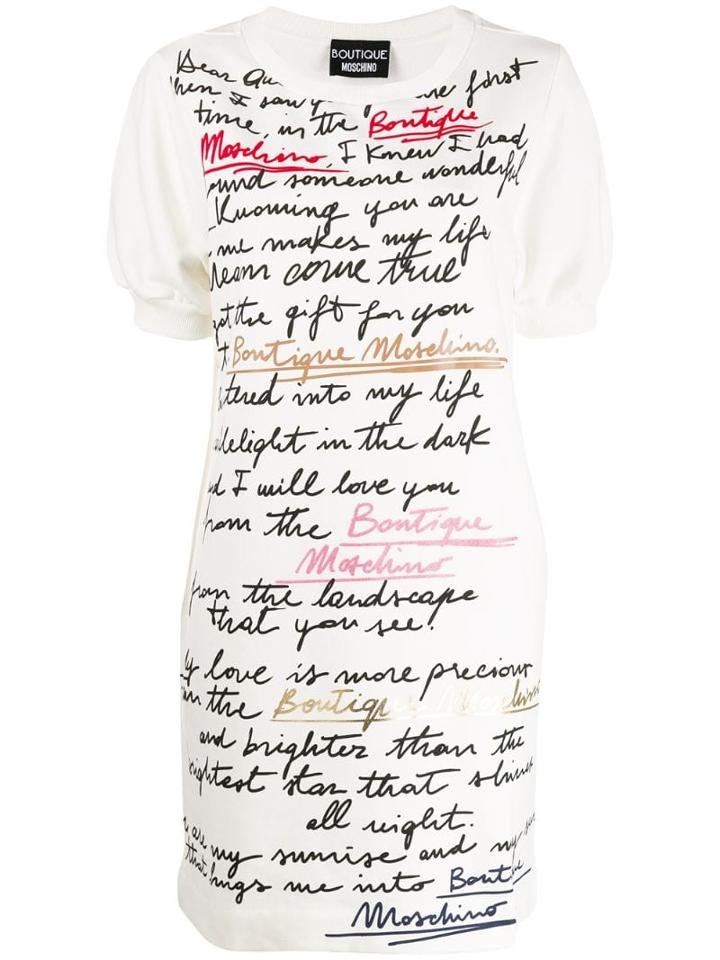 BOUTIQUE
MOSCHINO
Dear
I saw first
time, in the Boutique
Moschino, I Knew I had
ound someone wonderful
Knowing you are
me makes my life
ream come true
got the gift for you
t Boutique Moschino.
tered into my life
delight in the dark
d I will love you
rom the Boutique
Moschino
from the landscape
that you see!
y love is more precious
an the Boutique Moschino
and brighter than the
rightest star that shines
all night.
are my sunrise and my
that hugs me into Bouti
Moschino